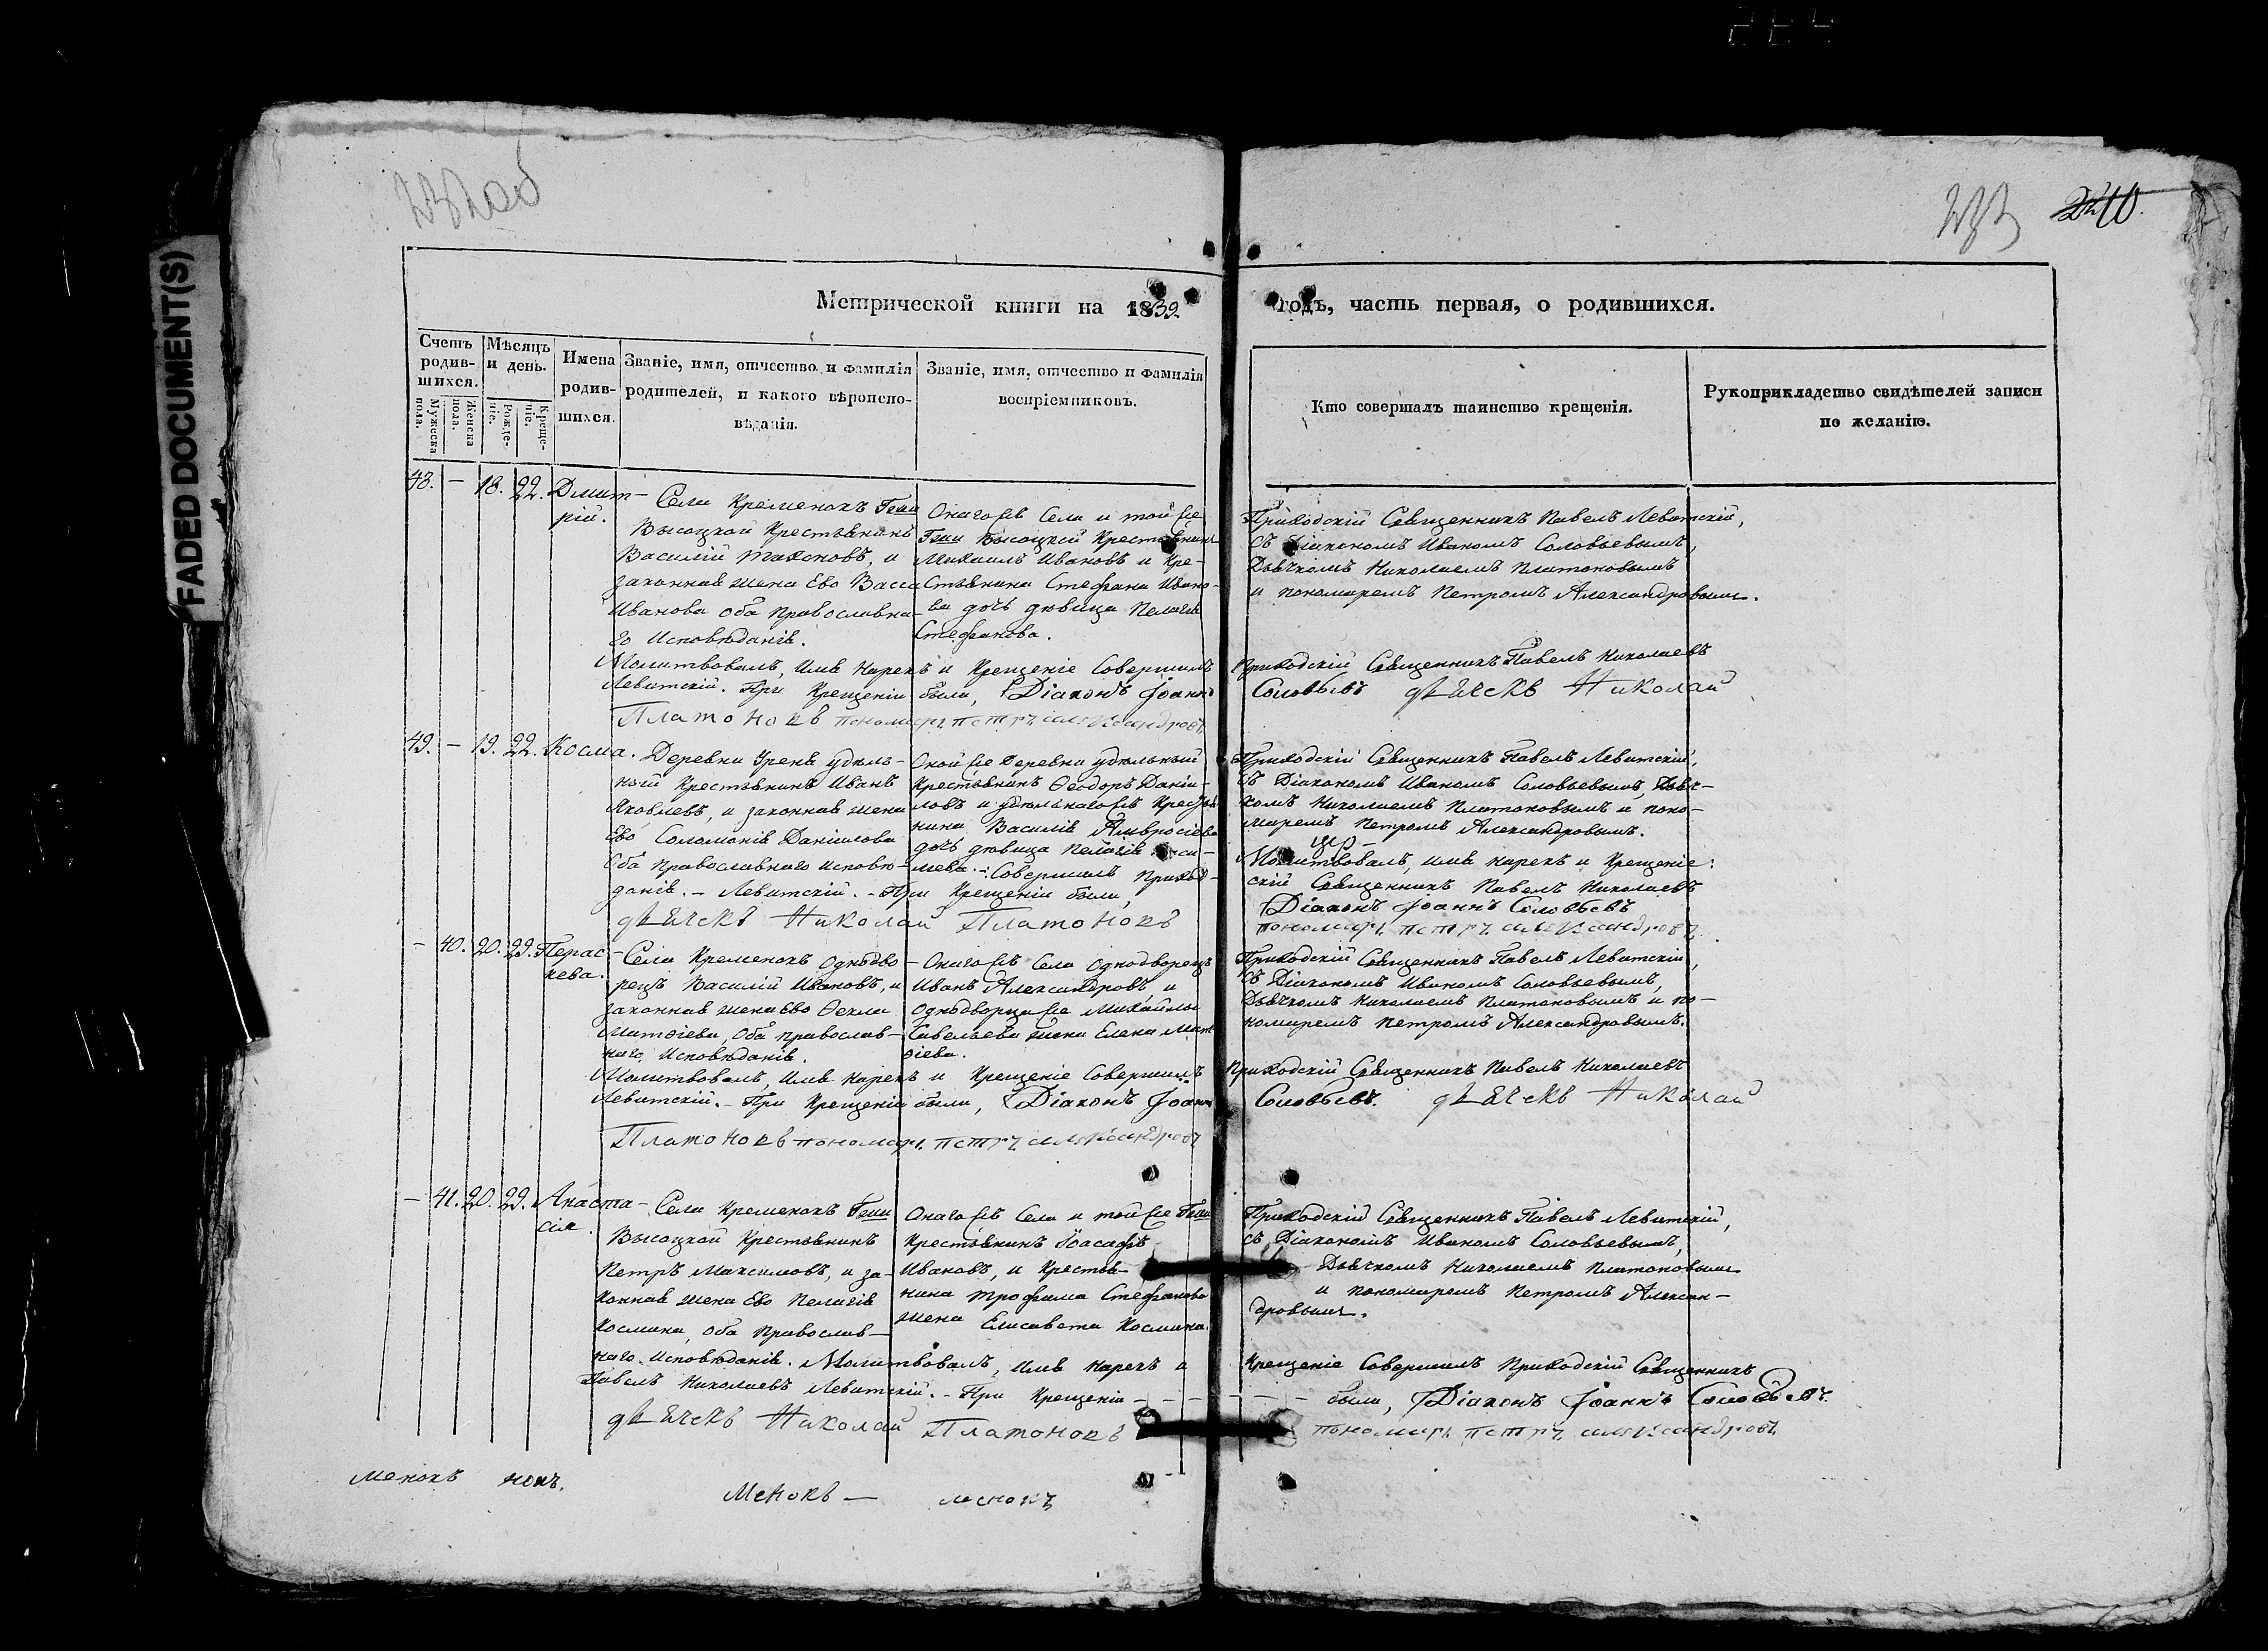 FADED DOCUMENT(S)
232об
233 2410.
Метрической книги на 1839
годъ, часть первая, о родившихся.
Счетъ родив-шихся.
Мужеска пола.
Женска пола.
Мѣсяцъ и день.
Рожде-ніе.
Креще-ніе.
Имена родив-шихся.
Званіе, имя, отчество и фамилія
родителей, и какого вѣроиспо-
вѣданія.
Званіе, имя, отчество и фамилія
воспріемниковъ.
Кто совершалъ таинство крещенія.
Рукоприкладство свидѣтелей записи
по желанію.
48. – 18. 22. Дмит-
рій.
Села Кременокъ Гжи
Высоцкой Крестьянинъ
Василій, и
законная жена Ево Васса
Иванова оба православна-
го Исповѣданія.
Онагожъ Села и той же
Гжи Высоцкой Крестьянинъ
Михаилъ Ивановъ и Кре-
стьянина Стефана Ивано-
ва дочь дѣвица Пелагія
Стефанова.
Приходскій Священникъ Павелъ Левитскій,
съ Діакономъ Иваномъ Соловьевымъ,
Дьячкомъ Николаемъ Платоновымъ
и пономаремъ Петромъ Александровымъ.
Молитвовалъ, Имя Нарекъ и Крещеніе Совершилъ Приходскій Священникъ Павелъ Николаевъ
Левитскій. При Крещеніи были, Діаконъ Іоаннъ Соловьевъ дьячекъ Николай
Платоновъ пономарь петръ александровъ
49. – 19. 22. Косма.
Деревни Уреня удѣль-
ный Крестьянинъ Иванъ
Яковлевъ, и законная жена
Ево Соломонія Даніилова
Оба Православнаго исповѣ-
данія.
Оной же Деревни удѣльный
Крестьянинъ Ѳеодоръ Даніи-
ловъ и удѣльнагожъ Крестья-
нина Василія Амвросіева
дочь дѣвица Пелагія
Приходскій Священникъ Павелъ Левитскій,
съ Діакономъ Иваномъ Соловьевымъ, Дьяч-
комъ Николаемъ Платоновымъ и поно-
маремъ Петромъ Александровымъ.
Молитвовалъ, имя нарекъ и Крещеніе:
Совершилъ Приход-
скій Священникъ Павелъ Николаевъ
Левитскій. – При Крещеніи были,
Діаконъ Іоаннъ Соловьевъ
дьячекъ Николай Платоновъ
пономарь петръ александровъ
– 40. 20. 23. Парас-
кева.
Села Кременокъ однодво-
рецъ Василій Ивановъ, и
законная жена Ево Ѳекла
Матѳіева, Оба православ-
наго Исповѣданія.
Онагожъ Села однодворецъ
Иванъ Александровъ, и
однодворца же Михайлы
Савельева жена Елена Мат-
ѳіева.
Приходскій Священникъ Павелъ Левитскій,
съ Діакономъ Иваномъ Соловьевымъ,
Дьячкомъ Николаемъ Платоновымъ и по-
номаремъ Петромъ Александровымъ.
Молитвовалъ, Имя нарекъ и Крещеніе Совершилъ Приходскій Священникъ Павелъ Николаевъ
Левитскій. – При Крещеніи были, Діаконъ Іоаннъ Соловьевъ. дьячекъ Николай
Платоновъ пономарь петръ александровъ
– 41. 20. 23. Анаста-
сія.
Села Кременокъ Гжи
Высоцкой Крестьянинъ
Петръ Максимовъ, и за-
конная жена Ево Пелагія
Космина, оба Православ-
наго Исповѣданія.
Онагожъ Села и той же Гжи
Крестьянинъ Іоасафъ
Ивановъ, и Крестья-
нина Трофима Стефанова
жена Елисавета Космина.
Приходскій Священникъ Павелъ Левитскій,
съ Діакономъ Иваномъ Соловьевымъ,
Дьячкомъ Николаемъ Платоновымъ
и пономаремъ Петромъ Алексан-
дровымъ.
Молитвовалъ, имя нарекъ и Крещеніе Совершилъ Приходскій Священникъ
Павелъ Николаевъ Левитскій. – При Крещеніи – – – были, Діаконъ Іоаннъ Соловьевъ.
дьячекъ Николай Платоновъ пономарь петръ александровъ
менокъ нокъ. менокъ – менокъ